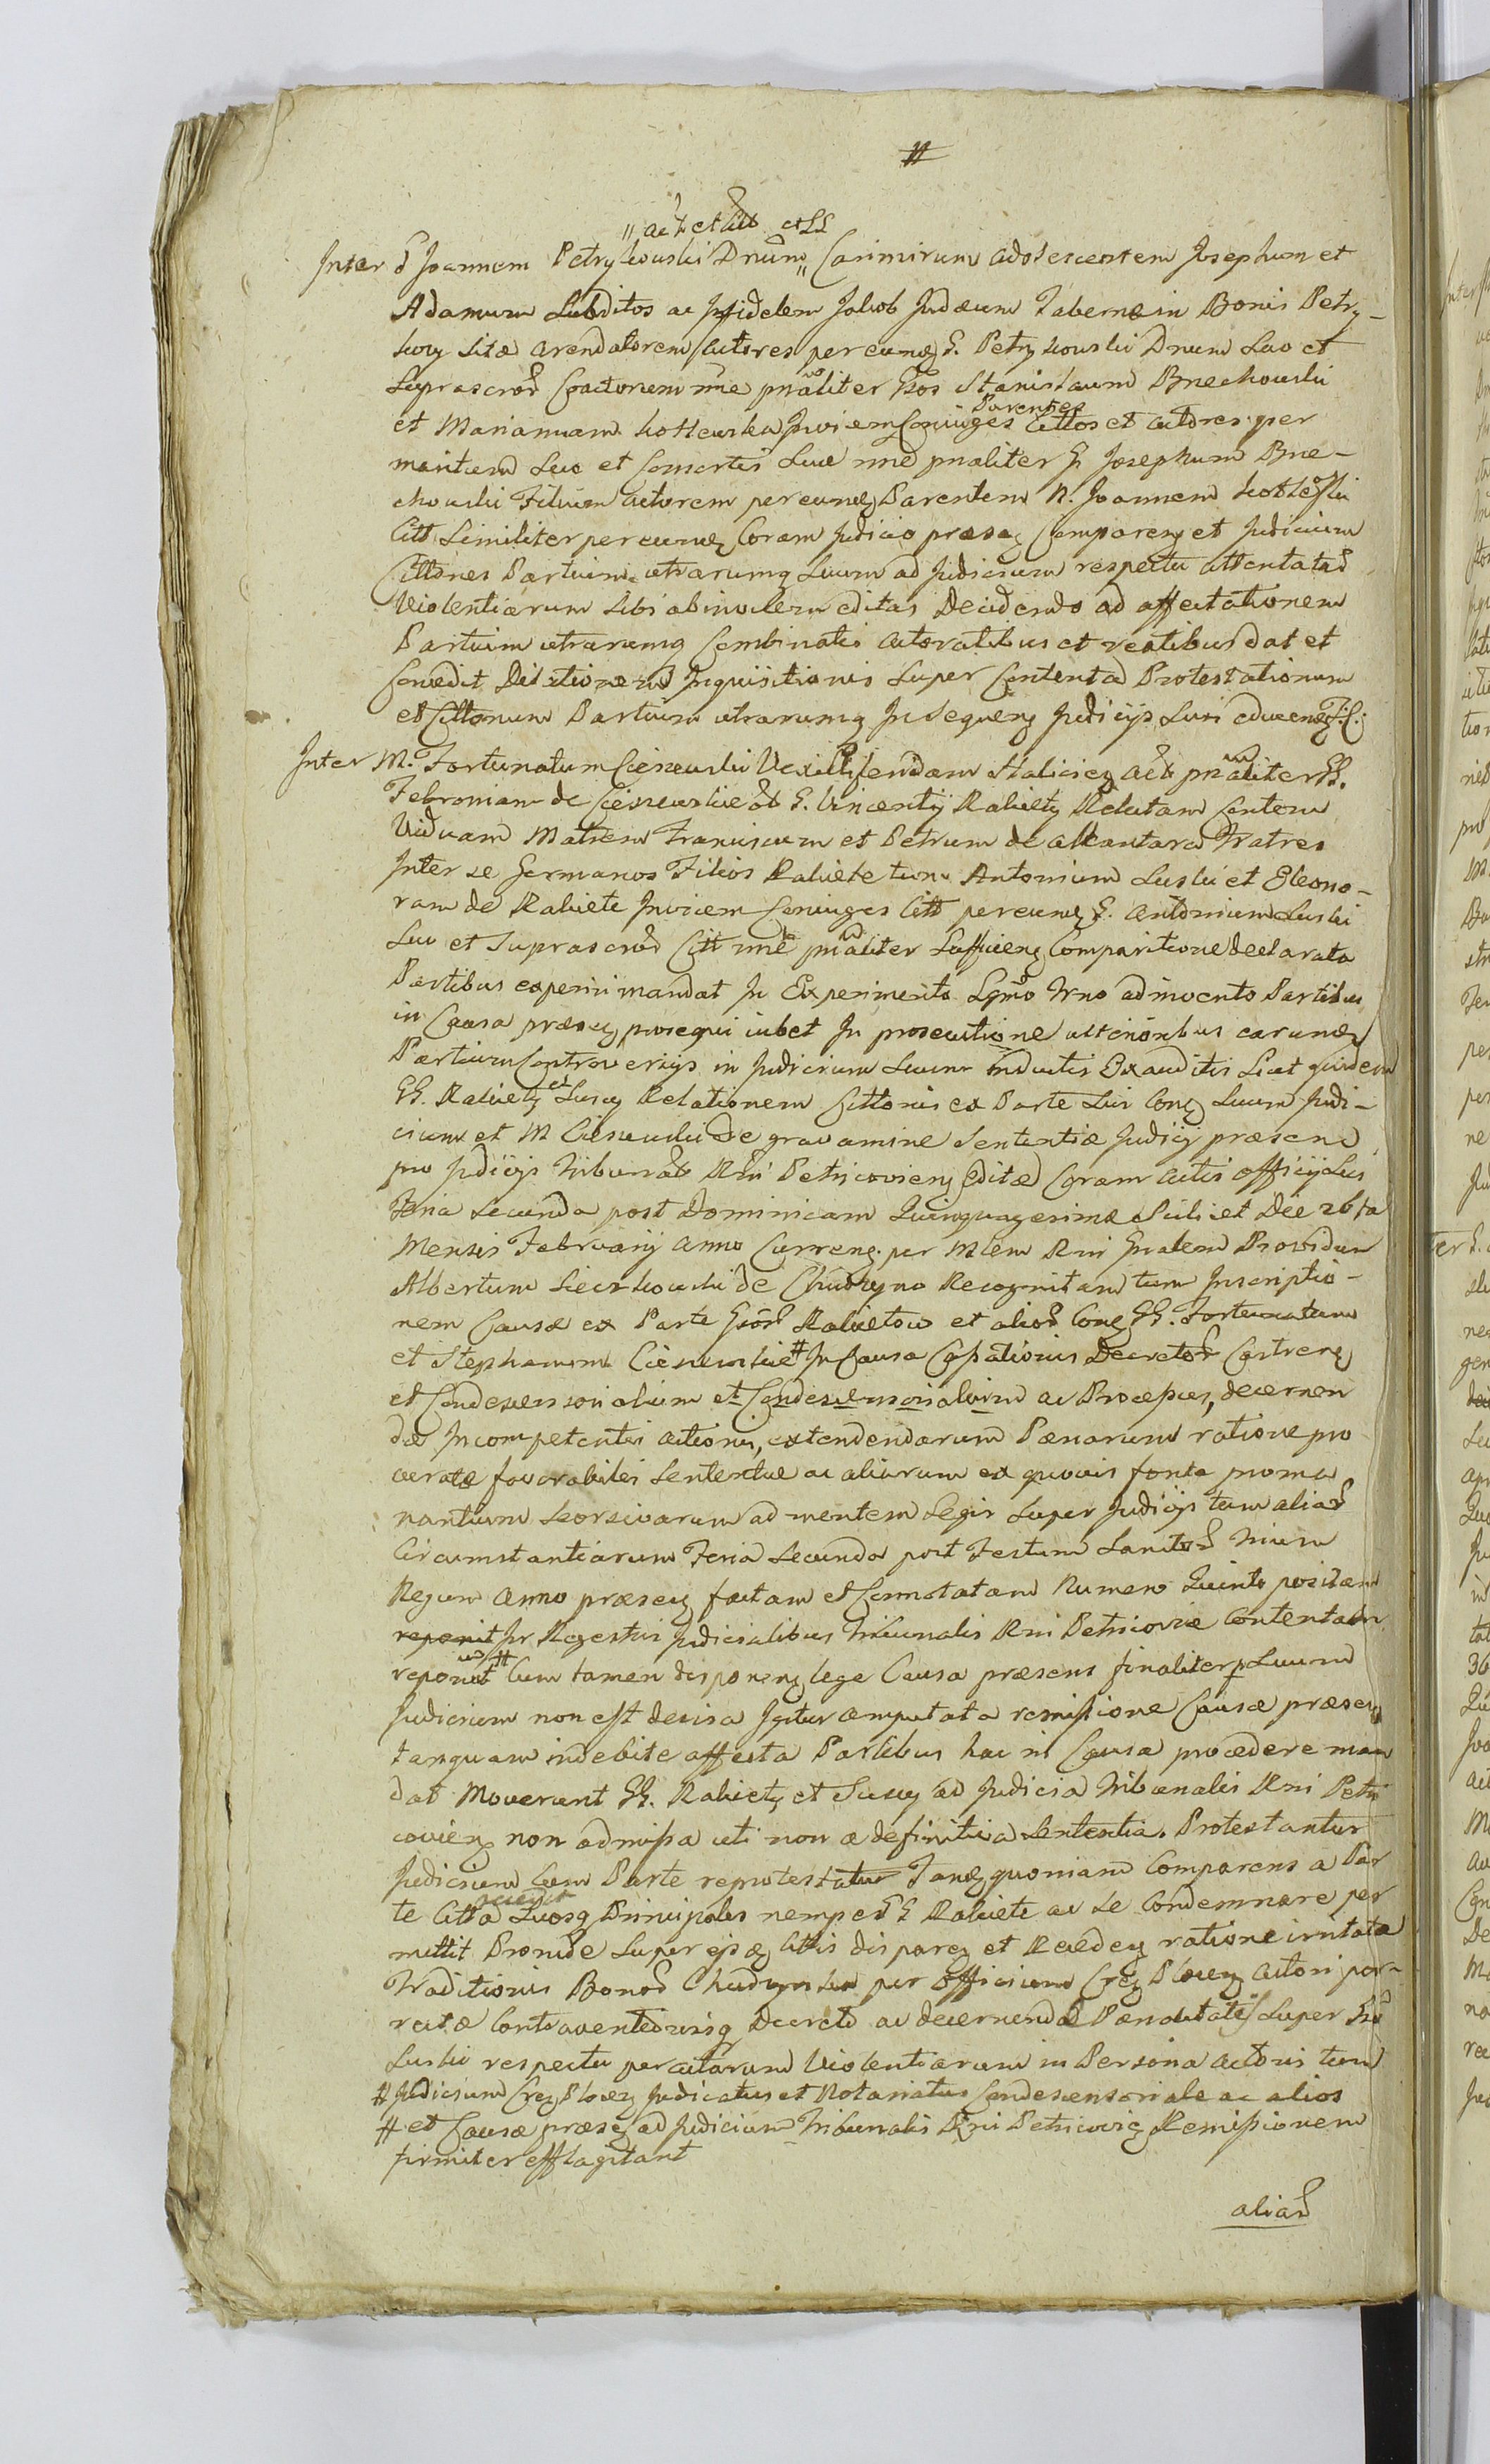 #
" act et citt et SS
Inter G Joannem Petrykowski Dnum " Casimirum adolescentem Josephum et
Adamum Subditos ac Infidelem Jakob Judæum Tabernæ in Bonis Petry-
kozy sitæ arendatorem actores per eunq G. Petrykowski Dnum Suo et
Suprascrod Coactorum nne pnaliter Gsos Stanislaum Brzechowski
et Mariannam Kotlewska Invicem Coniuges Parentes Cittos et actores per
maritum Suo et Consortis Suæ nne pnaliter G Josephum Brze-
chowski Filium actorem per eunq Parentem N. Joannem Kotlewski
Citt Similiter per eunq Coram Judicio præseq Comparenq et Judicium
Cittones Partium utrarumq Suum ad Judicium respectu attentatad
Violentiarum Sibi abinvicem editas Decidendo ad affectationem
Partium utrarumq Combinatis actoratibus et reatibus dat et
Concedit Dilationem Inquisitionis Super Contenta Protestationum
et Cittonum Partium utrarumq In Sequenq Judicijs Suis educenq S: C:
Inter M. Fortunatum Cieszewski Vexilliferidam Haliciey Act pnaliter GG.
Febroniam de Cieszewskie olt G. Vincentij Rakiety Relictam Consortem
Viduam Matrem Franciscum et Petrum de Alkantara Fratres
Inter se Germanos Filios Rakiete tum Antonium Suski et Eleono-
ram de Rakiete Invicem Coniuges Citt per eunq G. Antonium Suski
Suo et Suprascrod Citt nne pnaliter Sufficienq Comparitione declarata
Partibus experiri mandat In Experimento Lgmo Trno adinvento Partibus
in Causa præsenq prosequi iubet In prosecutione ulterioribus earunq
Partium Controversijs in Judicium Suum inductis Exauditis Licet quidem
GG. Rakiety et Suscy Relationem Cittonis ex Parte Sui Conq Suum Judi-
cium et M Cieszewski de gravamine Sententiæ Judicij præsens
pro Judicijs Tribunalt Rni Petricovienq Editæ Coram Actis Officij Sui
Feria Secunda post Dominicam Quinquagesimæ Scilicet Die 26ta
Mensis Februarij Anno Currenq per Mlem Rni Gnalem Providum
Albertum Sieczkowski de Chudzyno Recognitam tum Inscriptio-
nem Causæ ex Parte Gsord Rakietow et aliod Conq GG. Fortunatum
et Stephanum Cieszewskie # In Causa Cassationis Decretod Castrenq
et Condescensorialium et Condescensorialium ac Processus, decernen
dæ Incompetentis actionis, extendendarum Pænarum ratione pro
curatæ favorabilis Sententiæ ac aliarum ex quovis fonte proma
nantium Seorsivarum ad mentem Legis Super Judicijs tum aliad
Circumstantiarum Feria Secunda post Festum Sanctod Trium
Regum Anno præsenq factam et Connotatam Numero Quinto positam
reponit In Regestris Judicialibus Tribunalis Rni Petricoviæ Contentam
reponunt # Cum tamen disponenq lege Causa præsens finaliter p Suum
Judicium non est decisa Igitur amputata remissione Causæ præsenq
tanquam indebite affecta Partibus hac in Causa procedere man
dat Moverunt GG. Rakiety et Suscy ad Judicia Tribunalis Rni Petri
covienq non admissa uti non a definitiva Sententia. Protestantur
Judicium cum Parte reprotestatur Tandq quoniam Comparens a Par
te Citta Suosq Principales nempe GG Rakiete ac Se Condemnare per
mittit Proinde Super ijsdq Cittis disparenq et Recedenq ratione irritatæ
Traditionis Bonod Chudzynska per Officium Crey Plocenq Actori por-
rectæ Contraventionisq Decreto ac decernendæ Pænalitatis Super Gso
Suski respectu percutarum Violentiarum in Persona Actoris tum
# Judicium Crey Plocenq Judicatus et Notariatus Condescensoriale ac alios
# et Causæ præsenq ad Judicium Tribunalis Rni Petricovienq Remissionem
firmiter efflagitant
aliad